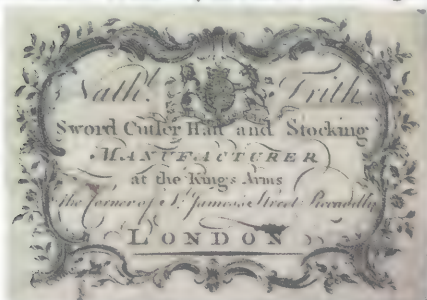 Nathl. Frith
Sword Cutler Hatt and Stocking
MANUFACTURER
at the Kings Arms
the Corner of St. James's Street Piccadilly
LONDON